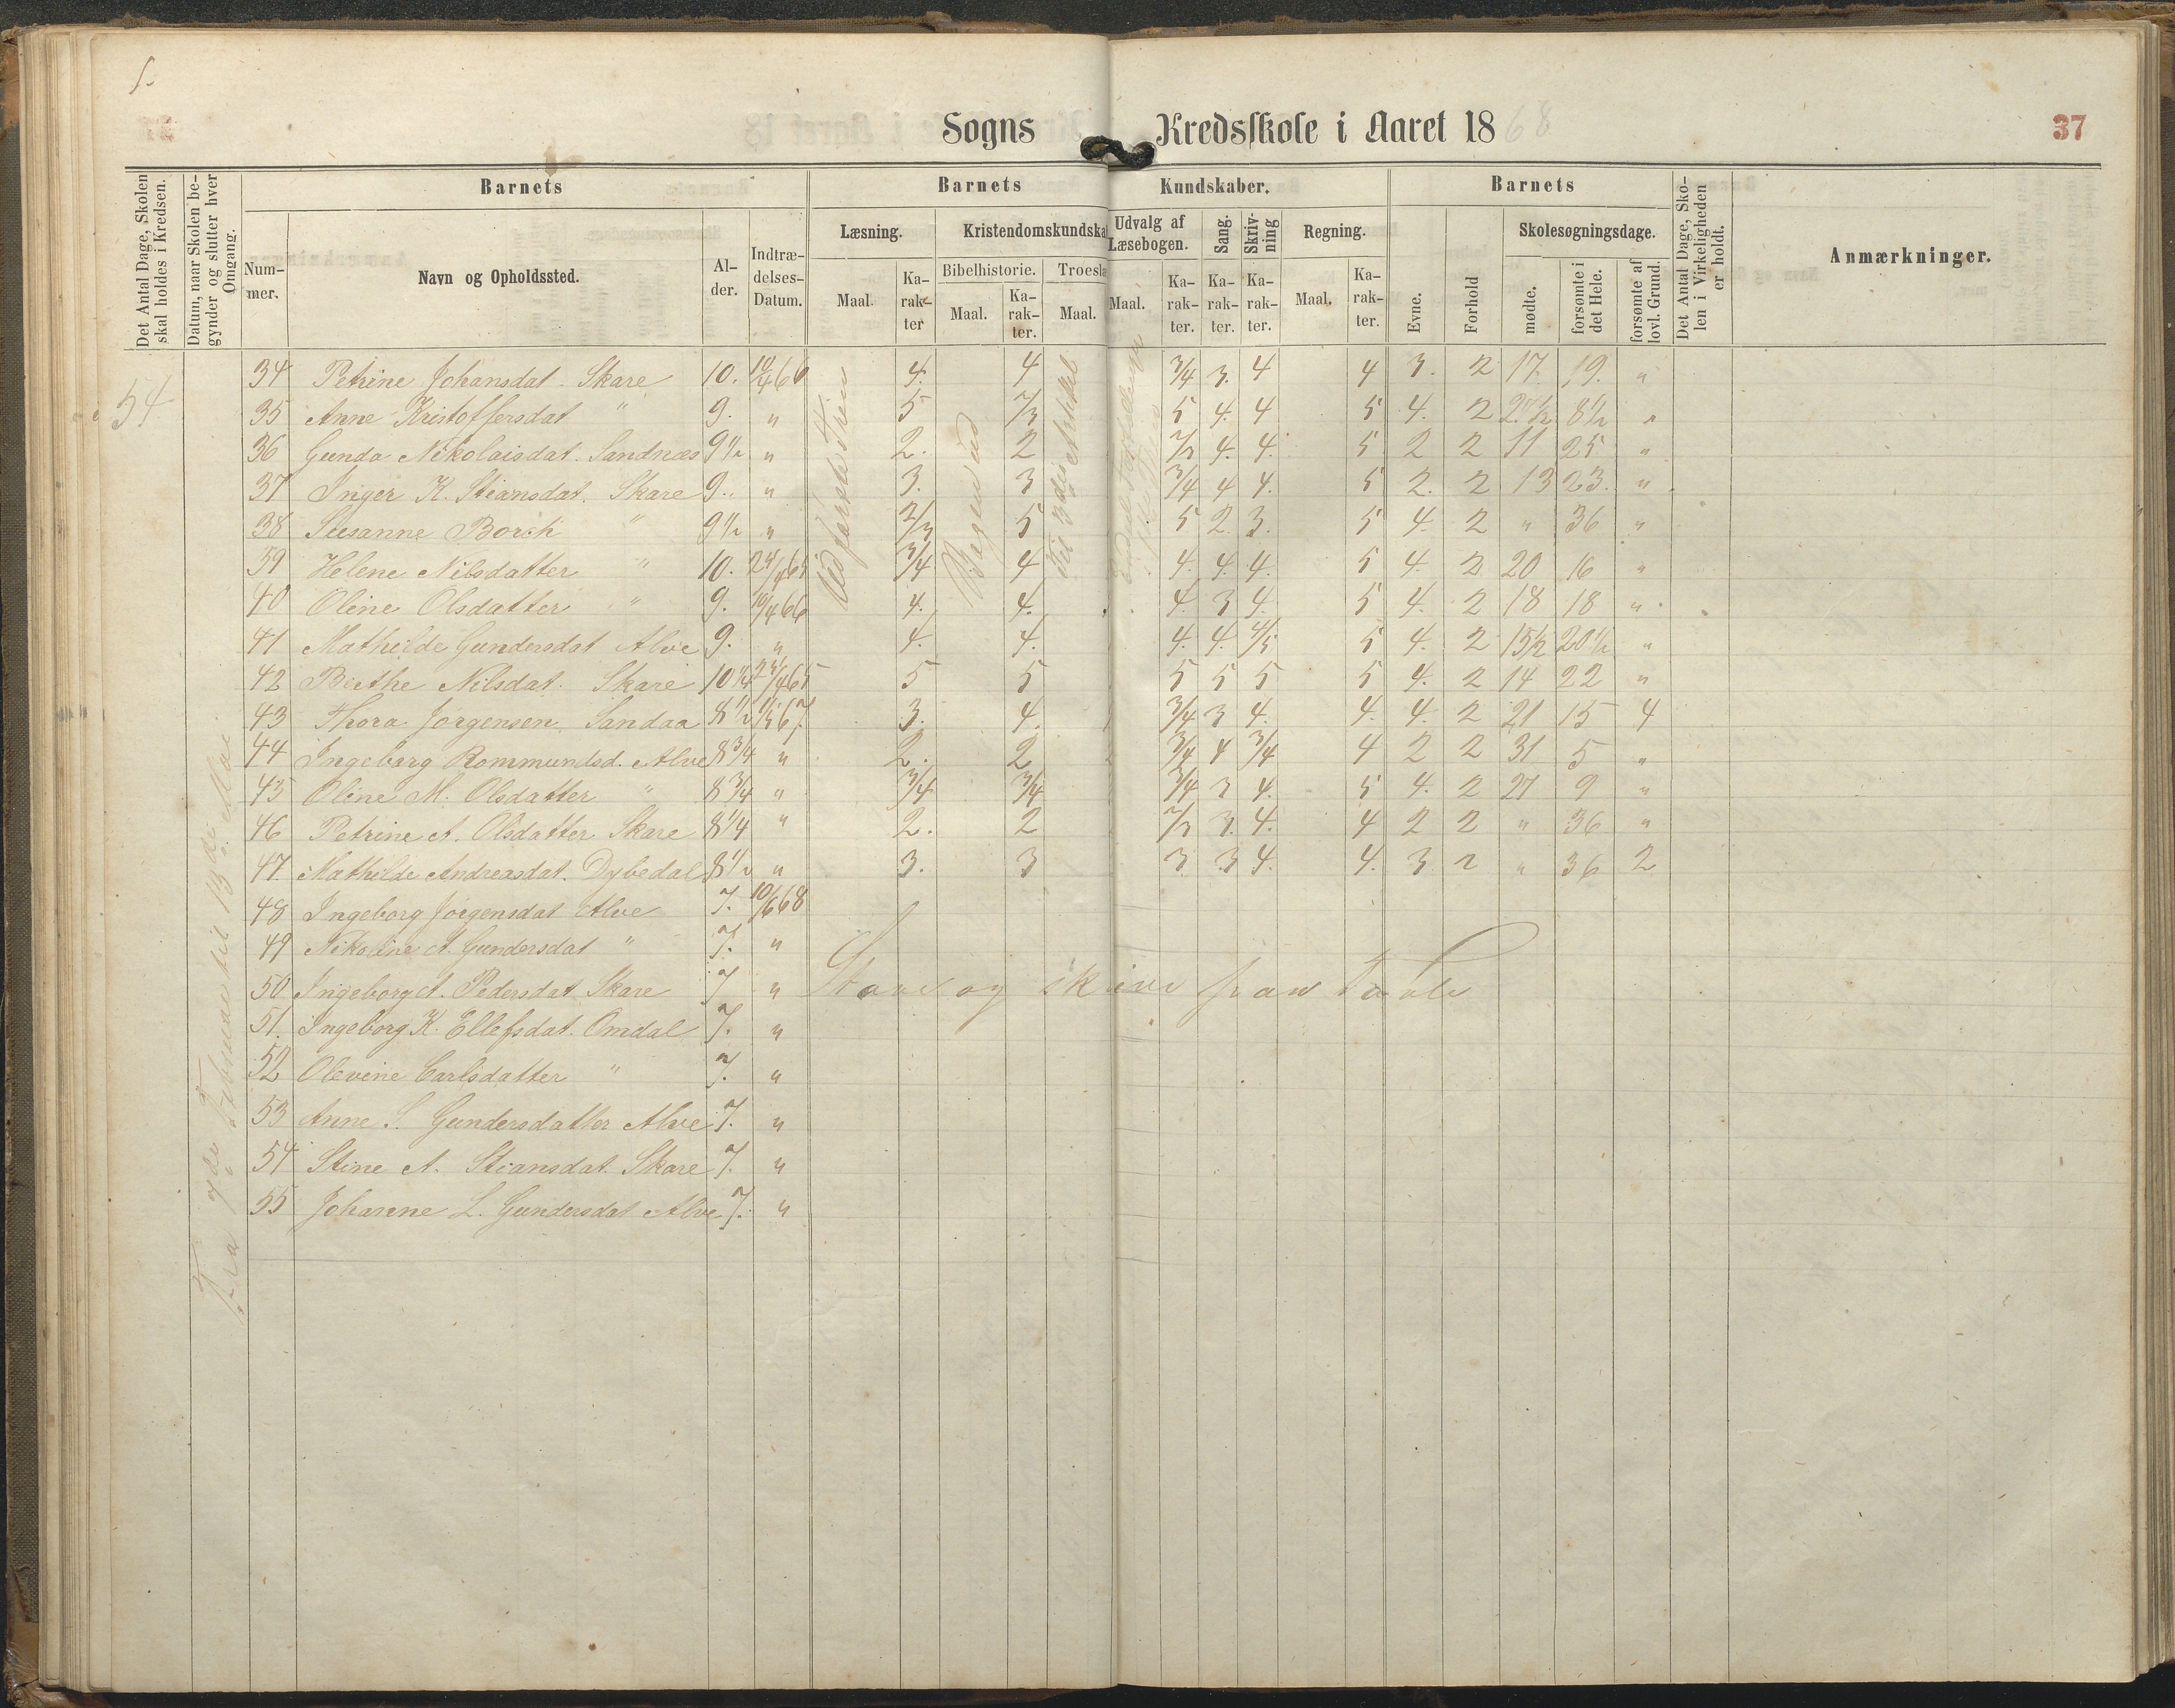 Sogns Kredsskole i Aaret 1868 37
Det Antal Dage, Skolen skal holdes i Kredsen.
Datum, naar Skolen begynder og slutter hver Omgang.
Barnets Barnets Kundskaber. Barnets
Det Antal Dage, Skolen i Virkeligheden er holdt.
Anmærkninger.
Nummer. Navn og Opholdssted. Alder. Indtrædelses-Datum.
Læsning. Kristendomskundska Udvalg af Læsebogen. Sang. Skrivning Regning. Evne. Forhold Skolesøgningsdage.
Bibelhistorie. Troeslæ
Maal. Karakter Maal. Karakter. Maal. Maal. Karakter. Karakter. Karakter. Maal. Karakter. mødte. forsømte i det Hele. forsømte af lovl. Grund.
54
34 Petrine Johansdat. Skare 10. 10/4 66 4. 4 3/4 3. 4 4 3. 2 17. 19. "
35 Anne Kristoffersdat " 9. " 5 2/3 5 4. 4 5 4. 2 27 1/2 8 1/2 "
36 Gunda Nikolaisdat. Sandnæs 9 1/2 " 2. 2 2/3 4. 4. 5 2 2 11 25 "
37 Inger K. Stiansdat. Skare 9. " 3. 3 3/4 4 4. 5 2. 2 13 23. "
38 Susanne Borch " 9 1/2 " 2/3 5 5 2. 3. 5 4. 2 " 36 "
39 Helene Nilsdatter " 10. 24/4 65 3/4 4 4. 4. 4. 5 4. 2 20 16 "
40 Oline Olsdatter " 9. 10/4 66 4. 4. 4. 3 4. 5 4. 2 18 18 "
41 Mathilde Gundersdat Alve 9. " 4. 4. 4. 4. 4/5 5 4. 2 15 1/2 20 1/2 "
42 Berthe Nilsdat. Skare 10 1/4 24/4 65 5 5 5 5 5 5 4. 2 14 22 "
43 Thora Jørgensen Sandaa 8 1/2 67 3. 4. 3/4 3 4. 4. 4. 2 21 15 4
44 Ingeborg Rommundsd. Alve 8 3/4 " 2. 2 3/4 4 3/4 4 2 2 31 5 "
45 Oline M. Olsdatter " 8 3/4 " 3/4 3/4 3/4 3 4. 5 4. 2 27 9 "
46 Petrine A. Olsdatter Skare 8 1/4 " 2. 2 2/3 3. 4. 4 2 2 " 36 "
47. Mathilde Andreasdat. Dybedal 8 1/2 " 3. 3 3 3 4. 4. 3 2 " 36 2
48 Ingeborg Jørgensdat Alve 7. 10/6 68
49 Nikoline A. Gundersdat " 7. "
50 Ingeborg A. Pedersdat Skare 7 "
51. Ingeborg K. Ellefsdat. Omdal 7. "
52 Olevine Carlsdatter " 7. "
53 Anne S. Gundersdatter Alve 7. "
54 Stine A. Stiansdat. Skare 7. "
55 Johanne L. Gundersdat Alve 7. "
Bogen ud
til 3die Artikel
Stave og skrive paa Tavle